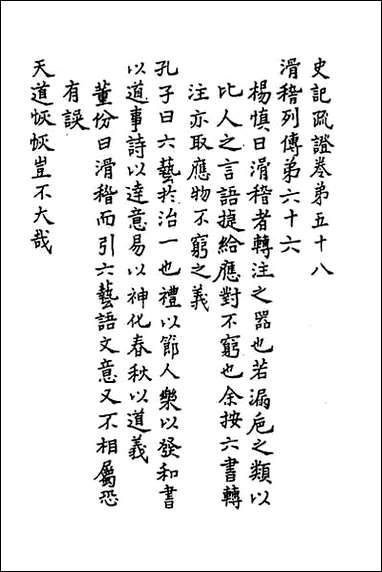 史記疏證卷第五十八
滑稽列傳第六十六
楊慎曰滑稽者轉注之器也若漏巵之類以
比人之言語捷給應對不窮也余按六書轉
注亦取應物不窮之義
孔子曰六藝於治一也禮以節人樂以發和書
以道事詩以達意易以神化春秋以道義
董份曰滑稽而引六藝語文意又不相屬恐
有誤
天道恢恢豈不大哉